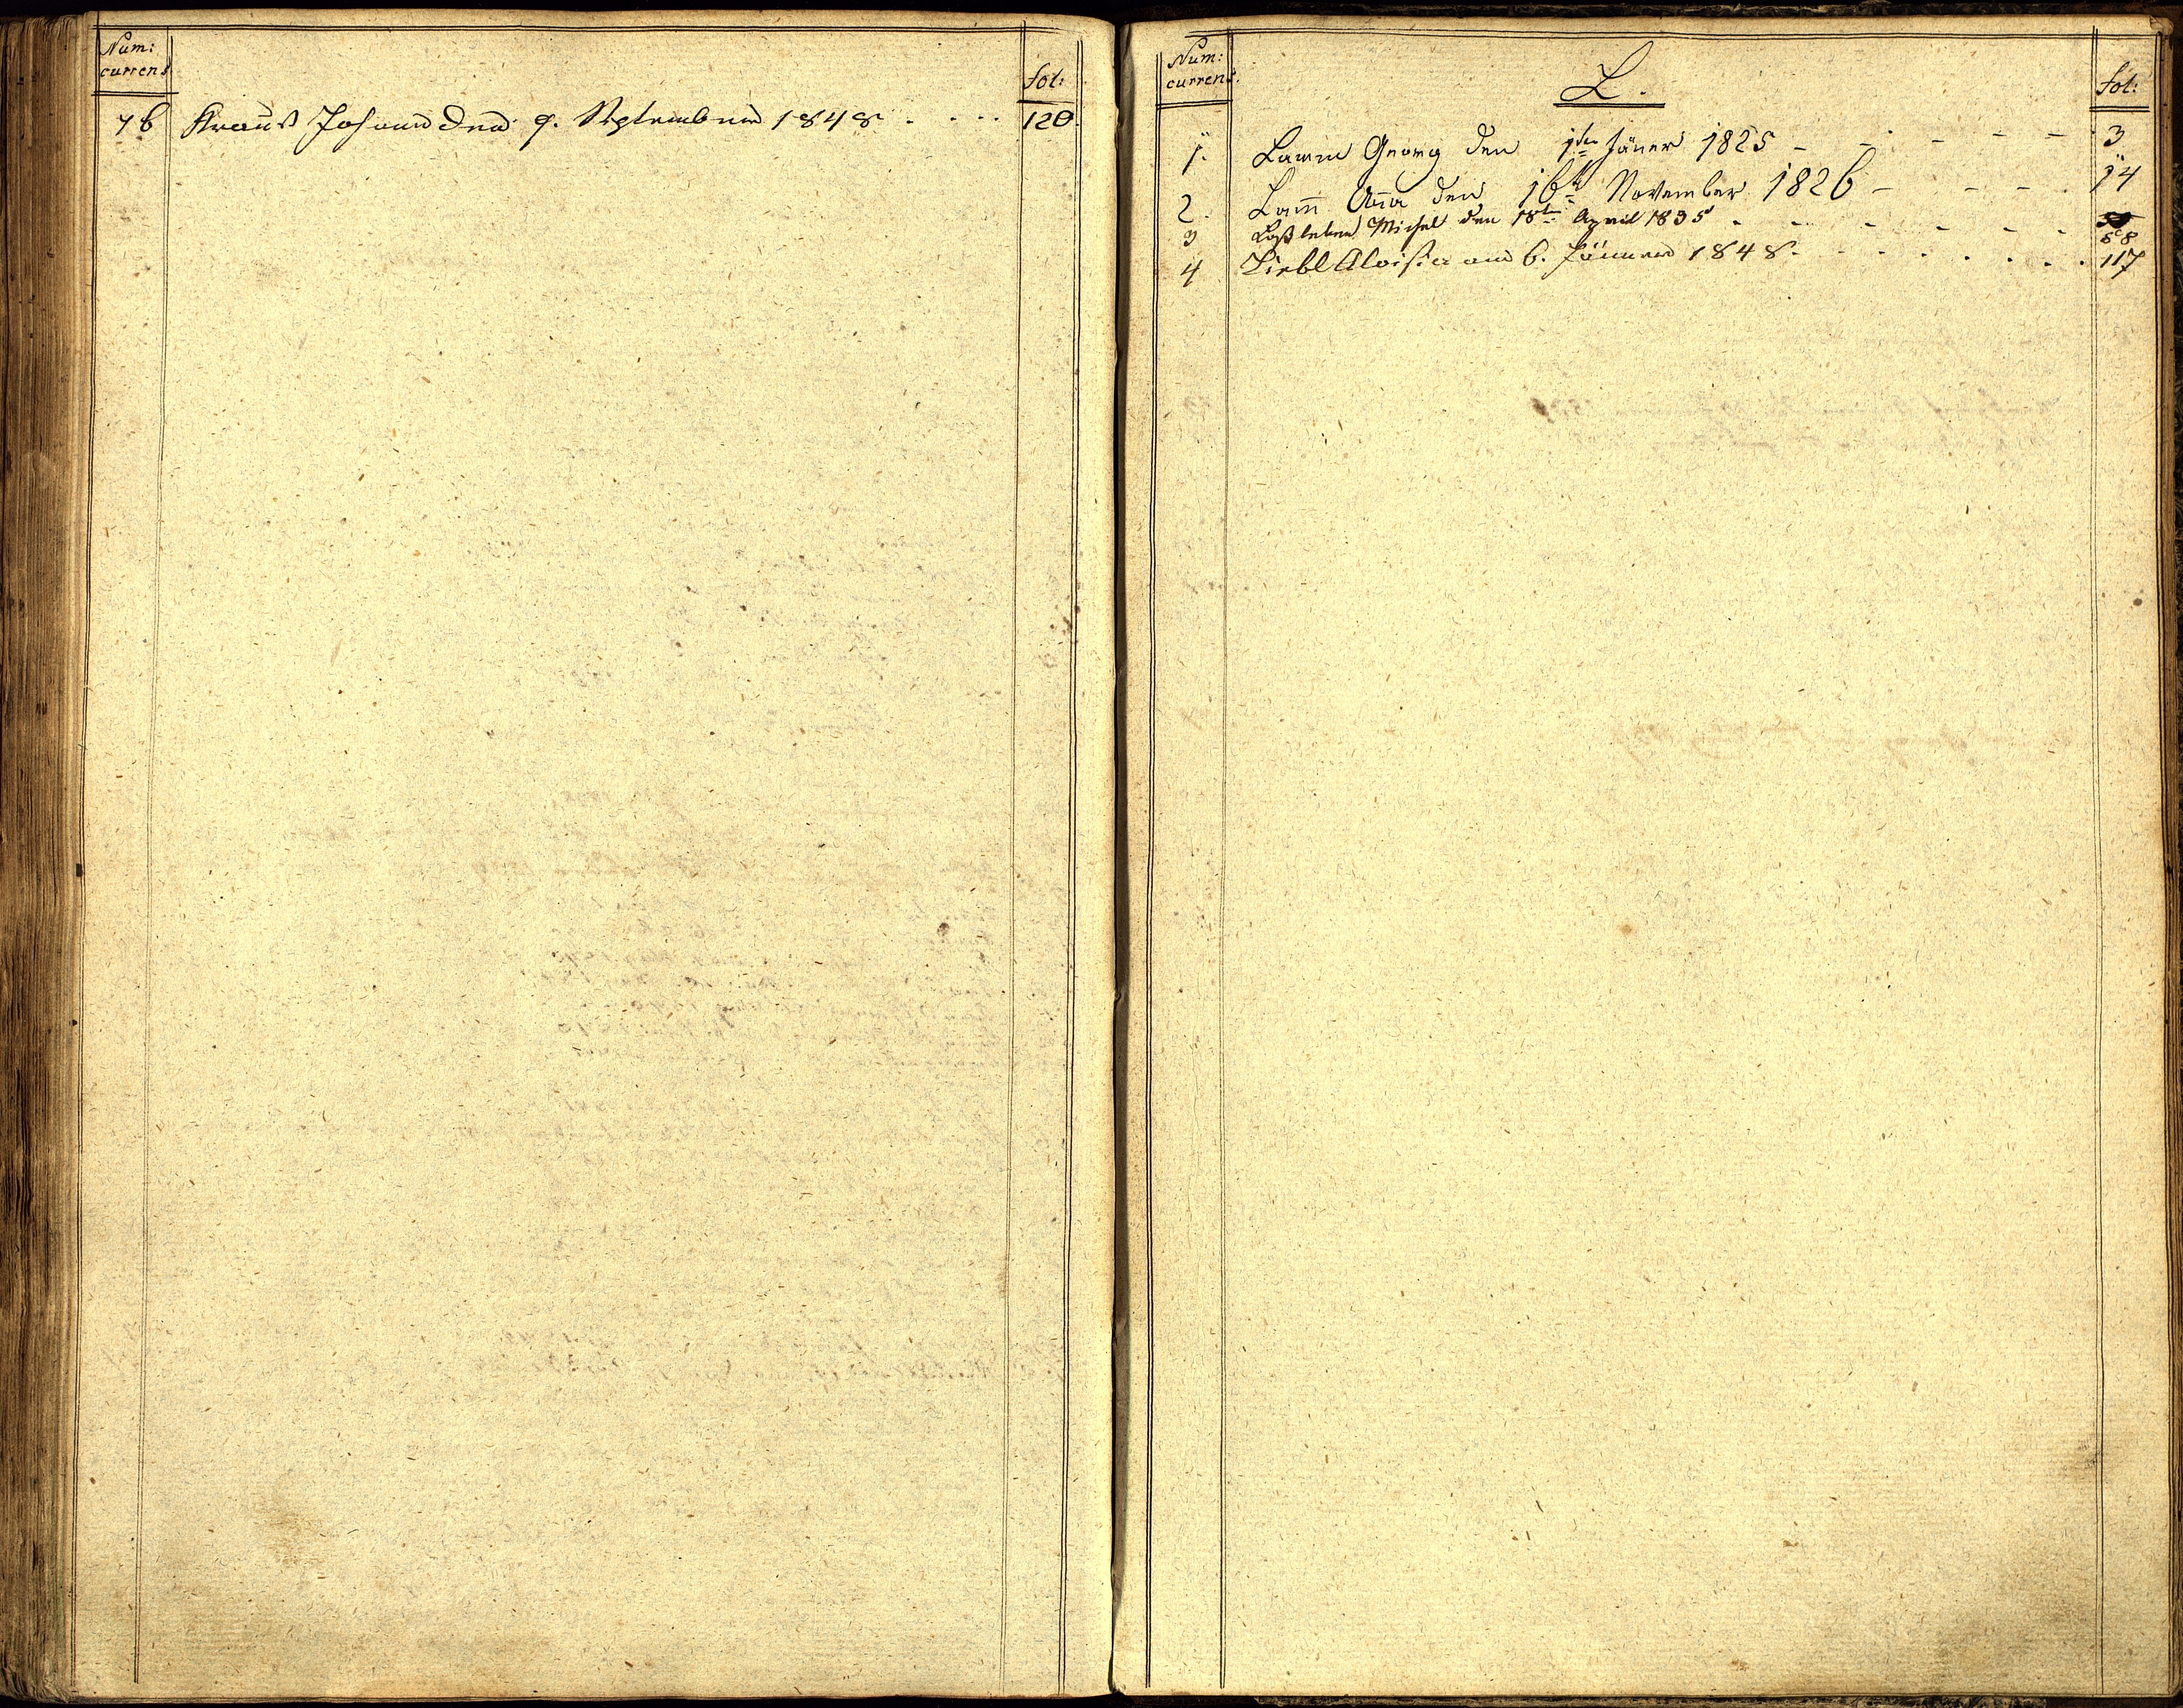 Num:
currens
fol:
76 Krauß Johann den 9. September 1848 . . . . 120.
Num:
currens.
L.
fol:
1. Lamm Georg den 1ten Jäner 1825 - - - - - 3
2. Lam̅ An̅a den 16t November 1826 - - - . 14
3 Loßleben Michel den 18t April 1835 - - - - - - 58
4 Liebl Aloisia am 6. Jänner 1848 . - . . . . . 117